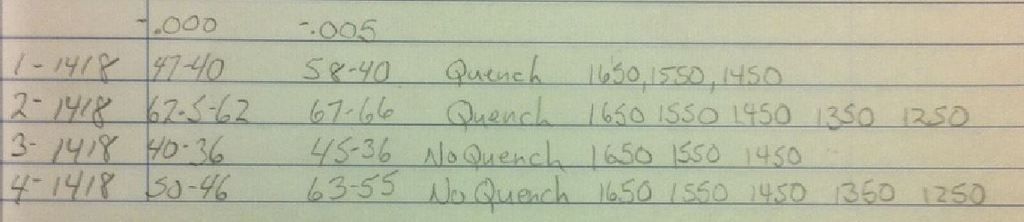 -.000 -.005
1-1418 47-40 58-40 Quench 1650, 1550, 1450
2-1418 62.5-62 67-66 Quench 1650 1550 1450 1350 1250
3-1418 40-36 45-36 No Quench 1650 1550 1450
4-1418 50-46 63-55 No Quench 1650 1550 1450 1350 1250